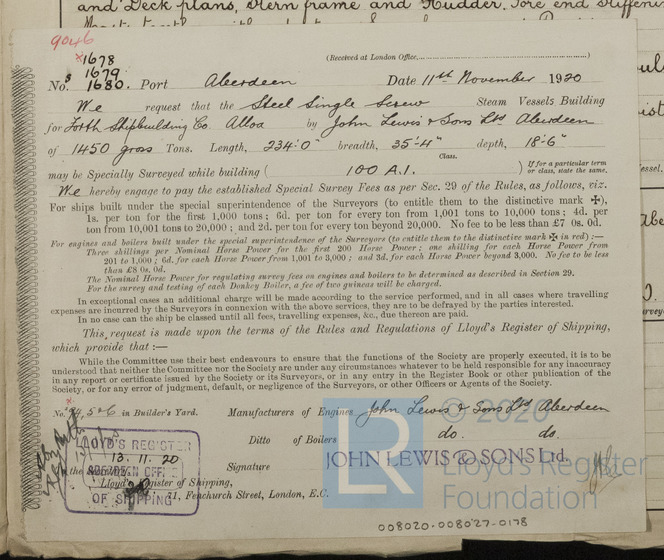 and Deck plans, Stern frame and Rudder. Fore end stiffening
9046
(Received at London Office,
x1678
1679
Nos. 1680. Port Aberdeen Date 11th November 1920
We request that the Steel Single Screw Steam Vessels Building
for Forth Shipbuilding Co. Alloa by John Lewis & Sons Ltd Aberdeen
of 1450 gross Tons. Length, 234'-0" breadth, 35'-4" depth, 18'-6"
may be Specially Surveyed while building ( Class. 100 A.1. ) If for a particular term or class, state the same.
We hereby engage to pay the established Special Survey Fees as per Sec. 29 of the Rules, as follows, viz.
For ships built under the special superintendence of the Surveyors (to entitle them to the distinctive mark ✠),
1s. per ton for the first 1,000 tons; 6d. per ton for every ton from 1,001 tons to 10,000 tons; 4d. per
ton from 10,001 tons to 20,000; and 2d. per ton for every ton beyond 20,000. No fee to be less than £7 0s. 0d.
For engines and boilers built under the special superintendence of the Surveyors (to entitle them to the distinctive mark ✠ in red) :—
Three shillings per Nominal Horse Power for the first 200 Horse Power; one shilling for each Horse Power from
201 to 1,000; 6d. for each Horse Power from 1,001 to 3,000; and 3d. for each Horse Power beyond 3,000. No fee to be less
than £8 0s. 0d.
The Nominal Horse Power for regulating survey fees on engines and boilers to be determined as described in Section 29.
For the survey and testing of each Donkey Boiler, a fee of two guineas will be charged.
In exceptional cases an additional charge will be made according to the service performed, and in all cases where travelling
expenses are incurred by the Surveyors in connexion with the above services, they are to be defrayed by the parties interested.
In no case can the ship be classed until all fees, travelling expenses, &c., due thereon are paid.
This request is made upon the terms of the Rules and Regulations of Lloyd's Register of Shipping,
which provide that :—
While the Committee use their best endeavours to ensure that the functions of the Society are properly executed, it is to be
understood that neither the Committee nor the Society are under any circumstances whatever to be held responsible for any inaccuracy
in any report or certificate issued by the Society or its Surveyors, or in any entry in the Register Book or other publication of the
Society, or for any error of judgment, default, or negligence of the Surveyors, or other Officers or Agents of the Society.
No. 94, 5 & 6 in Builder's Yard. Manufacturers of Engines John Lewis & Sons Ltd Aberdeen
Ditto of Boilers do. do.
LLOYD'S REGISTER
13.11.20
ABERDEEN OFFICE
OF SHIPPING
Signature JOHN LEWIS & SONS Ltd.
Lloyd's Register of Shipping,
71, Fenchurch Street, London, E.C.
LR © 2020
Lloyd's Register
Foundation
008020-008027-0178